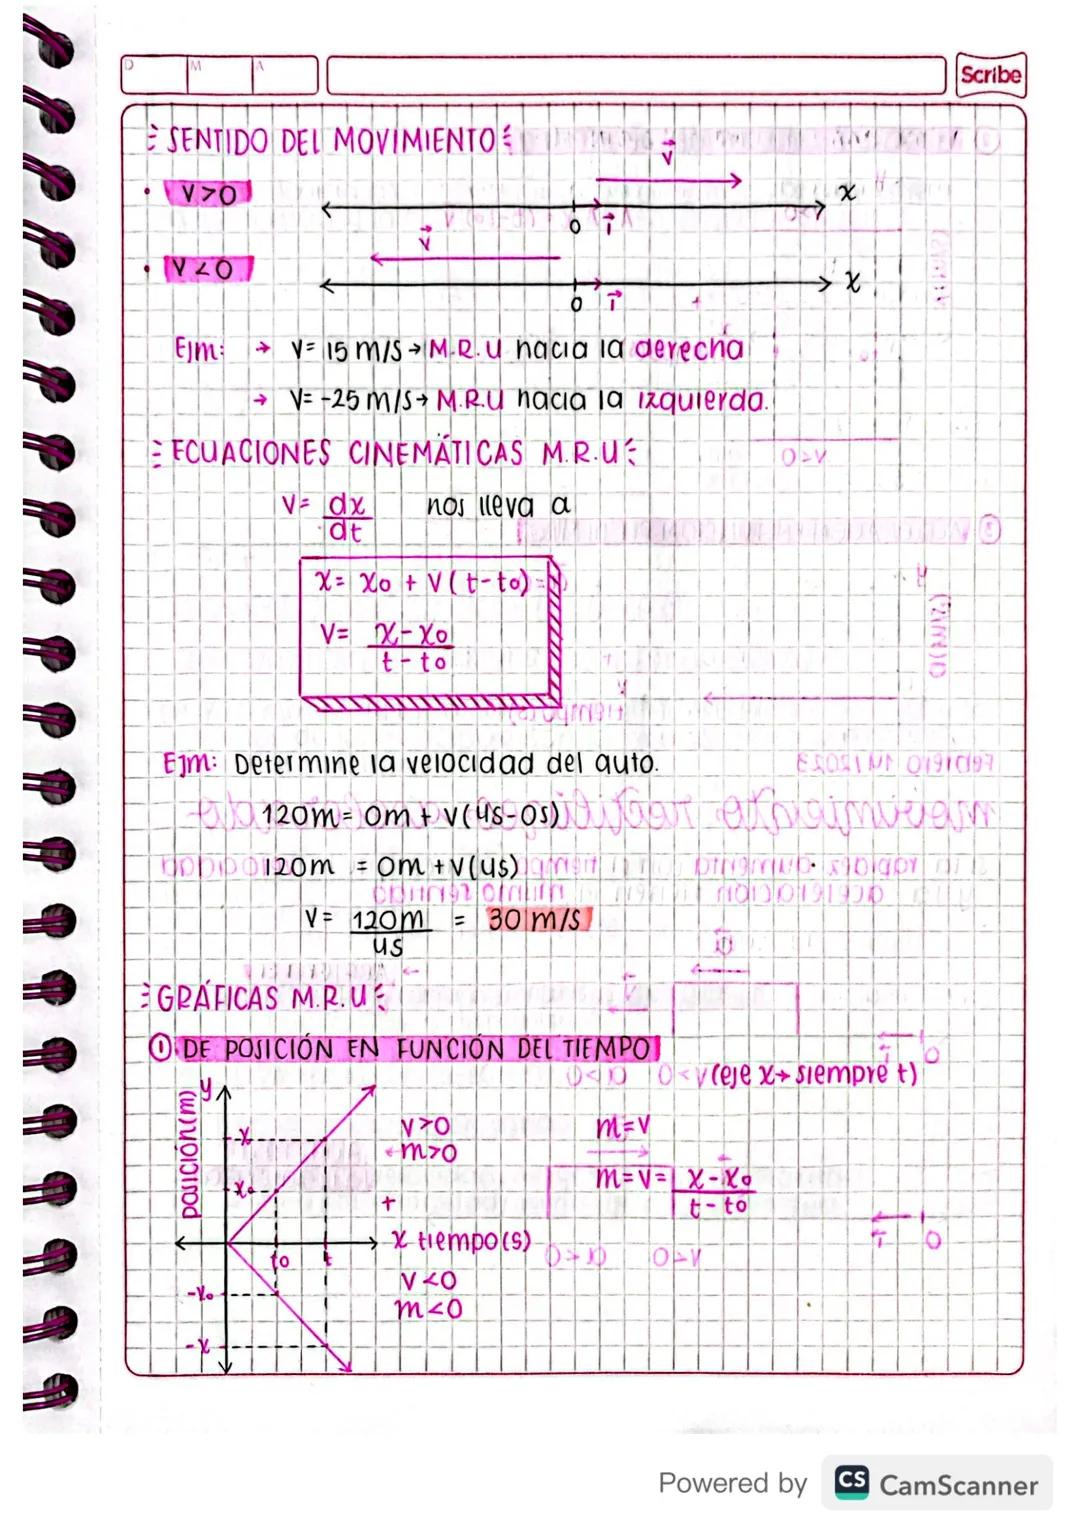 D M A
Scribe
SENTIDO DEL MOVIMIENTO
• V>0
v⃗
x
0 i⃗
• V<0
v⃗
x
0 i⃗
Ejm: → V= 15 m/s → M.R.U hacia la derecha
→ V= -25 m/s → M.R.U hacia la izquierda.
ECUACIONES CINEMÁTICAS M.R.U
V= dx/dt nos lleva a
x= x₀ + v(t-t₀)
V= x-x₀
t-t₀
Ejm: Determine la velocidad del auto.
120m= 0m + v(4s-0s)
120m = 0m + v(4s)
V= 120m = 30 m/s
4s
GRÁFICAS M.R.U
① DE POSICIÓN EN FUNCIÓN DEL TIEMPO
(eje x→ siempre t)
posición(m)
y
x
x₀
V>0
m>0
m=v
m=v= x-x₀
t-t₀
t₀ t
x tiempo(s)
V<0
m<0
-x₀
-x
Powered by CS CamScanner